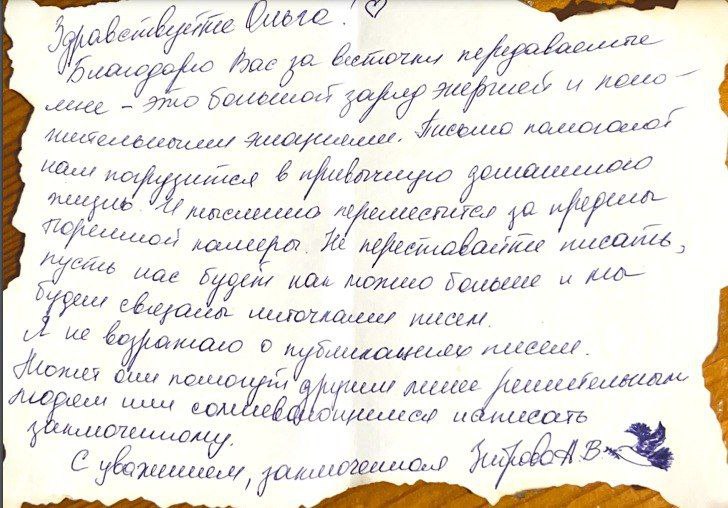 Здравствуйте Ольга! ♡
Благодарю Вас за весточки передаваемые
мне – это большой заряд энергией и поло–
жительными эмоциями. Письма помогают
нам погрузится в привычную домашнюю
жизнь. И мысленно переместится за пределы
тюремной камеры. Не переставайте писать,
пусть нас будет как можно больше и мы
будем связаны ниточками писем.
Я не возражаю о публикациях писем.
Может они помогут другим менее решительным
людям или сомневающимся написать
заключенному.
С уважением, заключенная А.В.